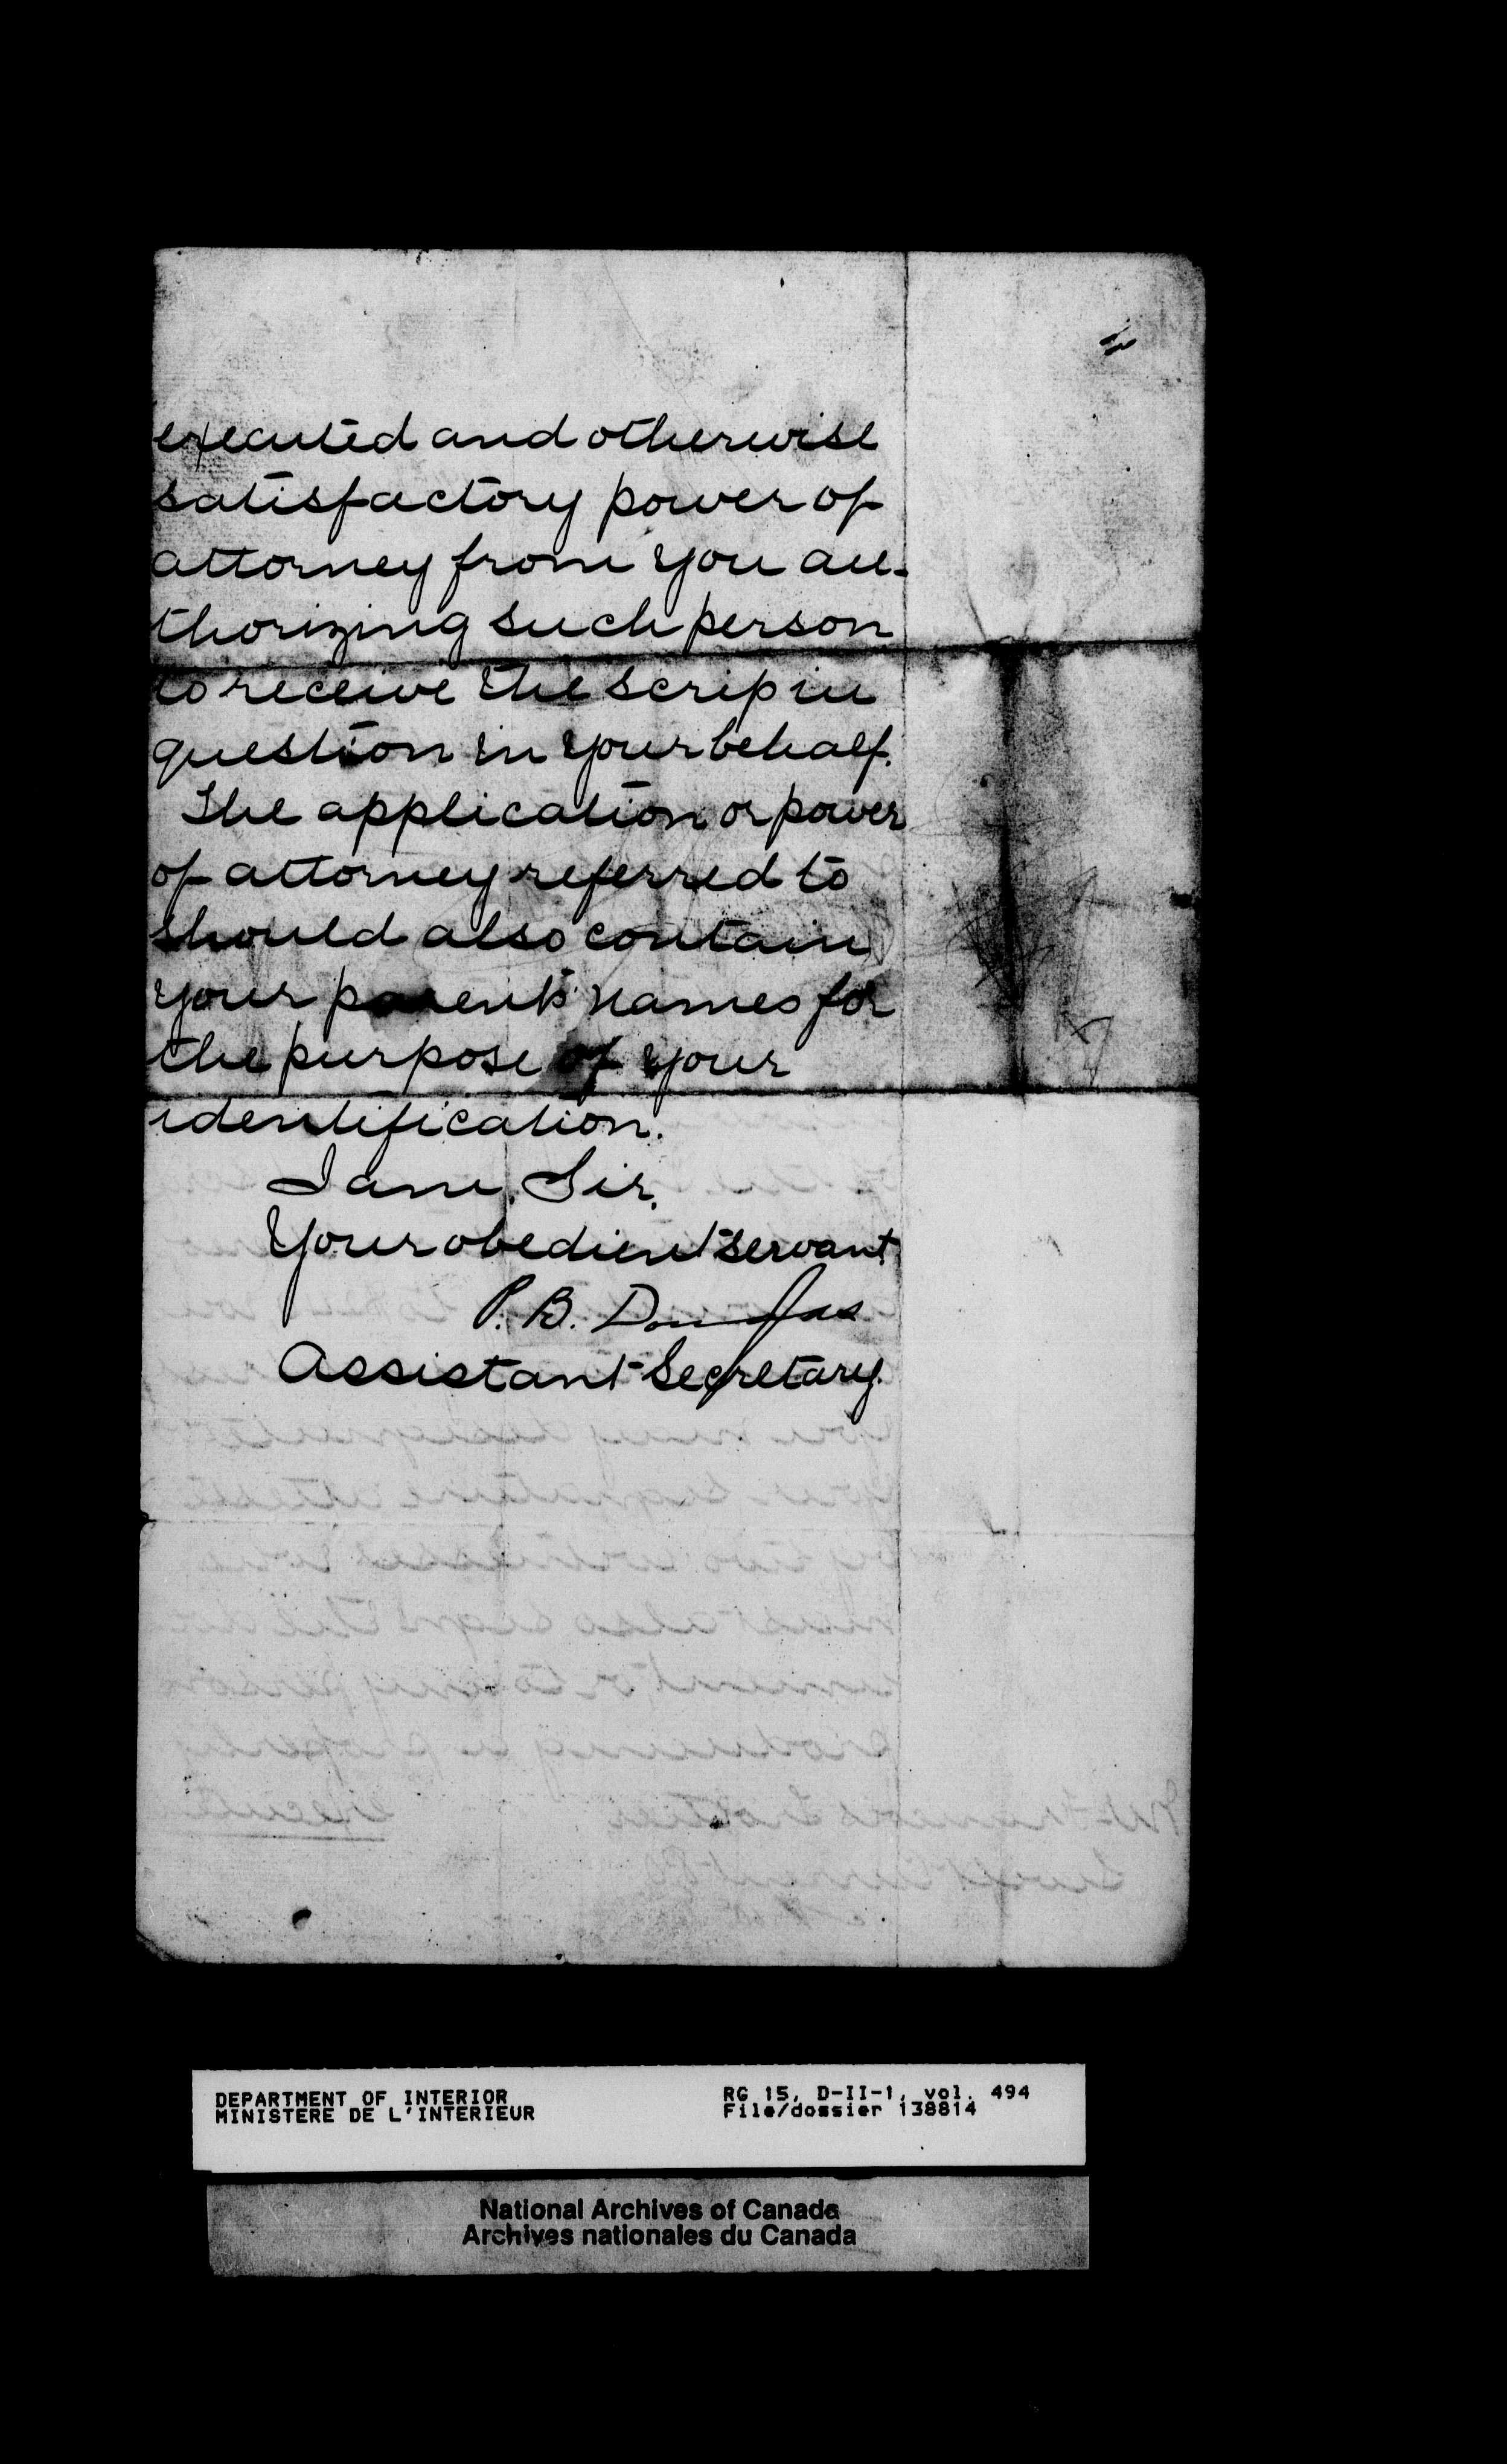 executed and otherwise
satisfactory power of
attorney from you au-
thorizing such person
to receive the scrip in
question in your behalf.
The application or power
of attorney referred to
should also contain
your parents' names for
the purpose of your
identification.
I am, Sir,
Your obedient servant
P. B. Douglas
Assistant Secretary.
DEPARTMENT OF INTERIOR
MINISTERE DE L'INTERIEUR
RG 15, D-II-1, vol. 494
File/dossier 138814
National Archives of Canada
Archives nationales du Canada